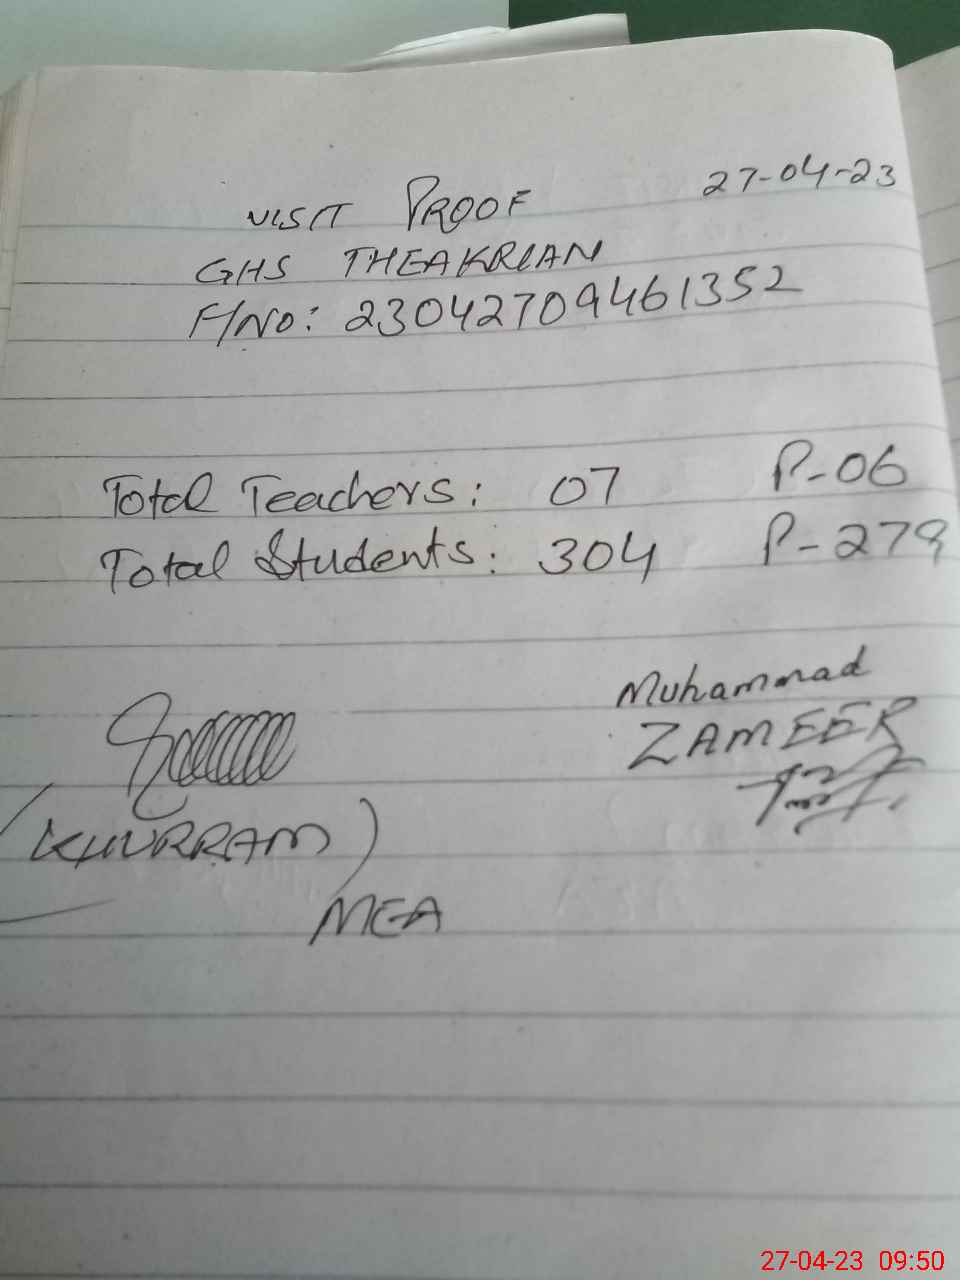 27-04-23
VISIT PROOF
GHS THEAKRIAN
F/NO: 23042709461352
Total Teachers: 07 P-06
Total Students: 304 P-279
Muhammad
ZAMEER
(KHURRAM)
MEA
27-04-23 09:50